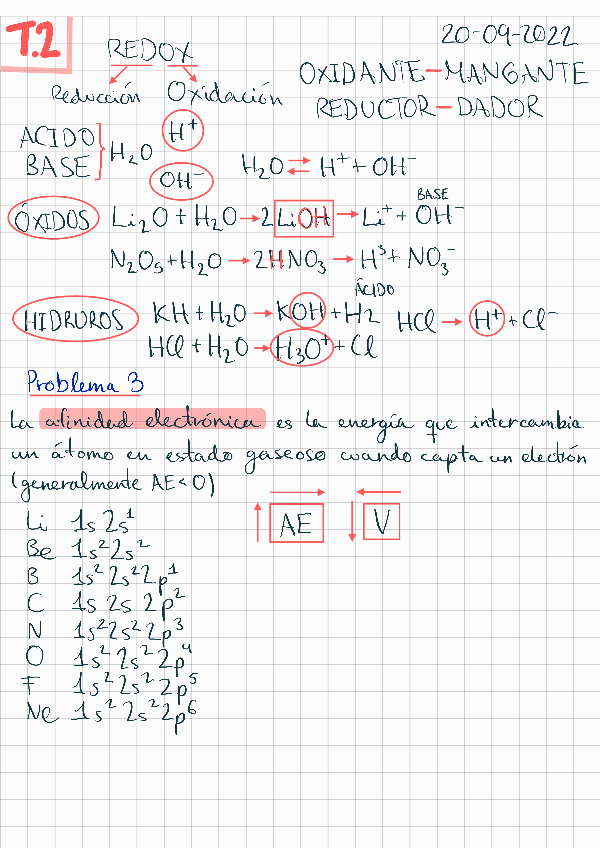 T.2
20-09-2022
REDOX
Reducción Oxidación
OXIDANTE-MANGANTE
REDUCTOR-DADOR
ÁCIDO
BASE
H₂O
H⁺
OH⁻
H₂O ⇄ H⁺ + OH⁻
ÓXIDOS Li₂O + H₂O → 2LiOH → Li⁺ + OH⁻
BASE
N₂O₅ + H₂O → 2HNO₃ → H⁺ + NO₃⁻
ÁCIDO
HIDRUROS KH + H₂O → KOH + H2
HCl → H⁺ + Cl⁻
HCl + H₂O → H₃O⁺ + Cl
Problema 3
La afinidad electrónica es la energía que intercambia
un átomo en estado gaseoso cuando capta un electrón
(generalmente AE<0)
↑ AE → ↓ V ←
Li 1s 2s¹
Be 1s² 2s²
B 1s² 2s² 2p¹
C 1s 2s 2p²
N 1s² 2s² 2p³
O 1s² 2s² 2p⁴
F 1s² 2s² 2p⁵
Ne 1s² 2s² 2p⁶